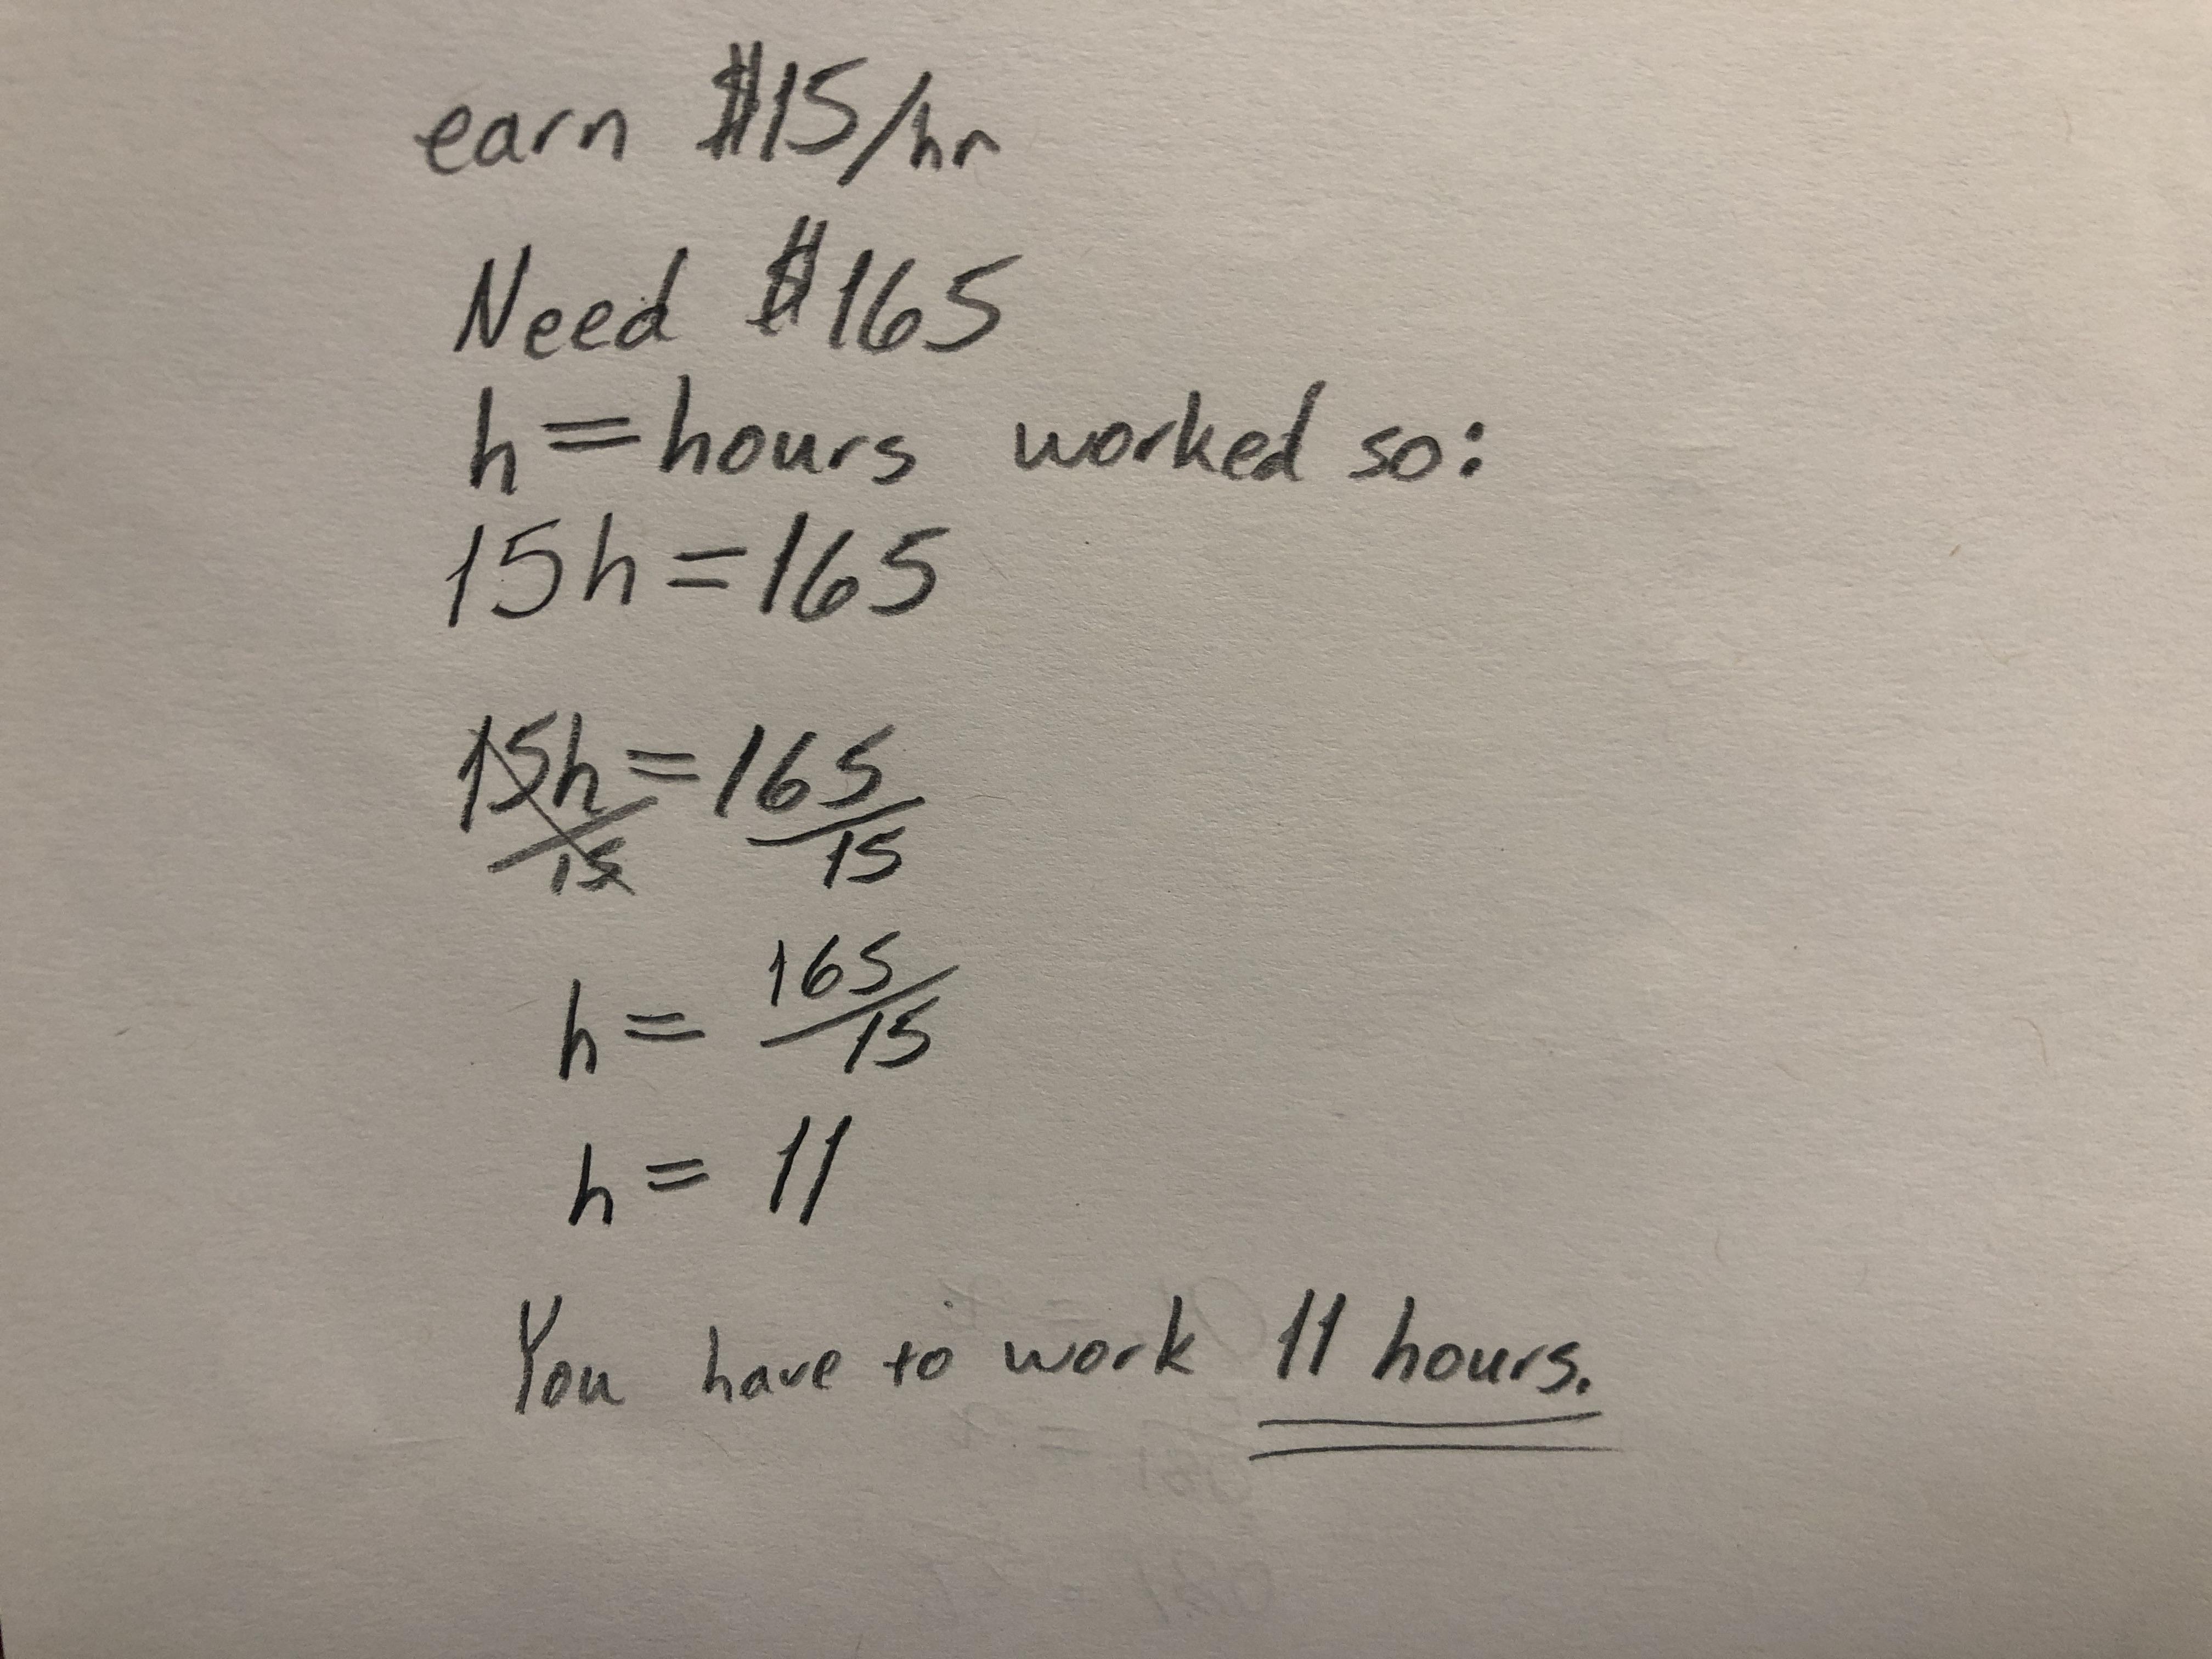 earn $15/hr
Need $165
h = hours worked so:
15h = 165
15h/15 = 165/15
h = 165/15
h = 11
You have to work 11 hours.